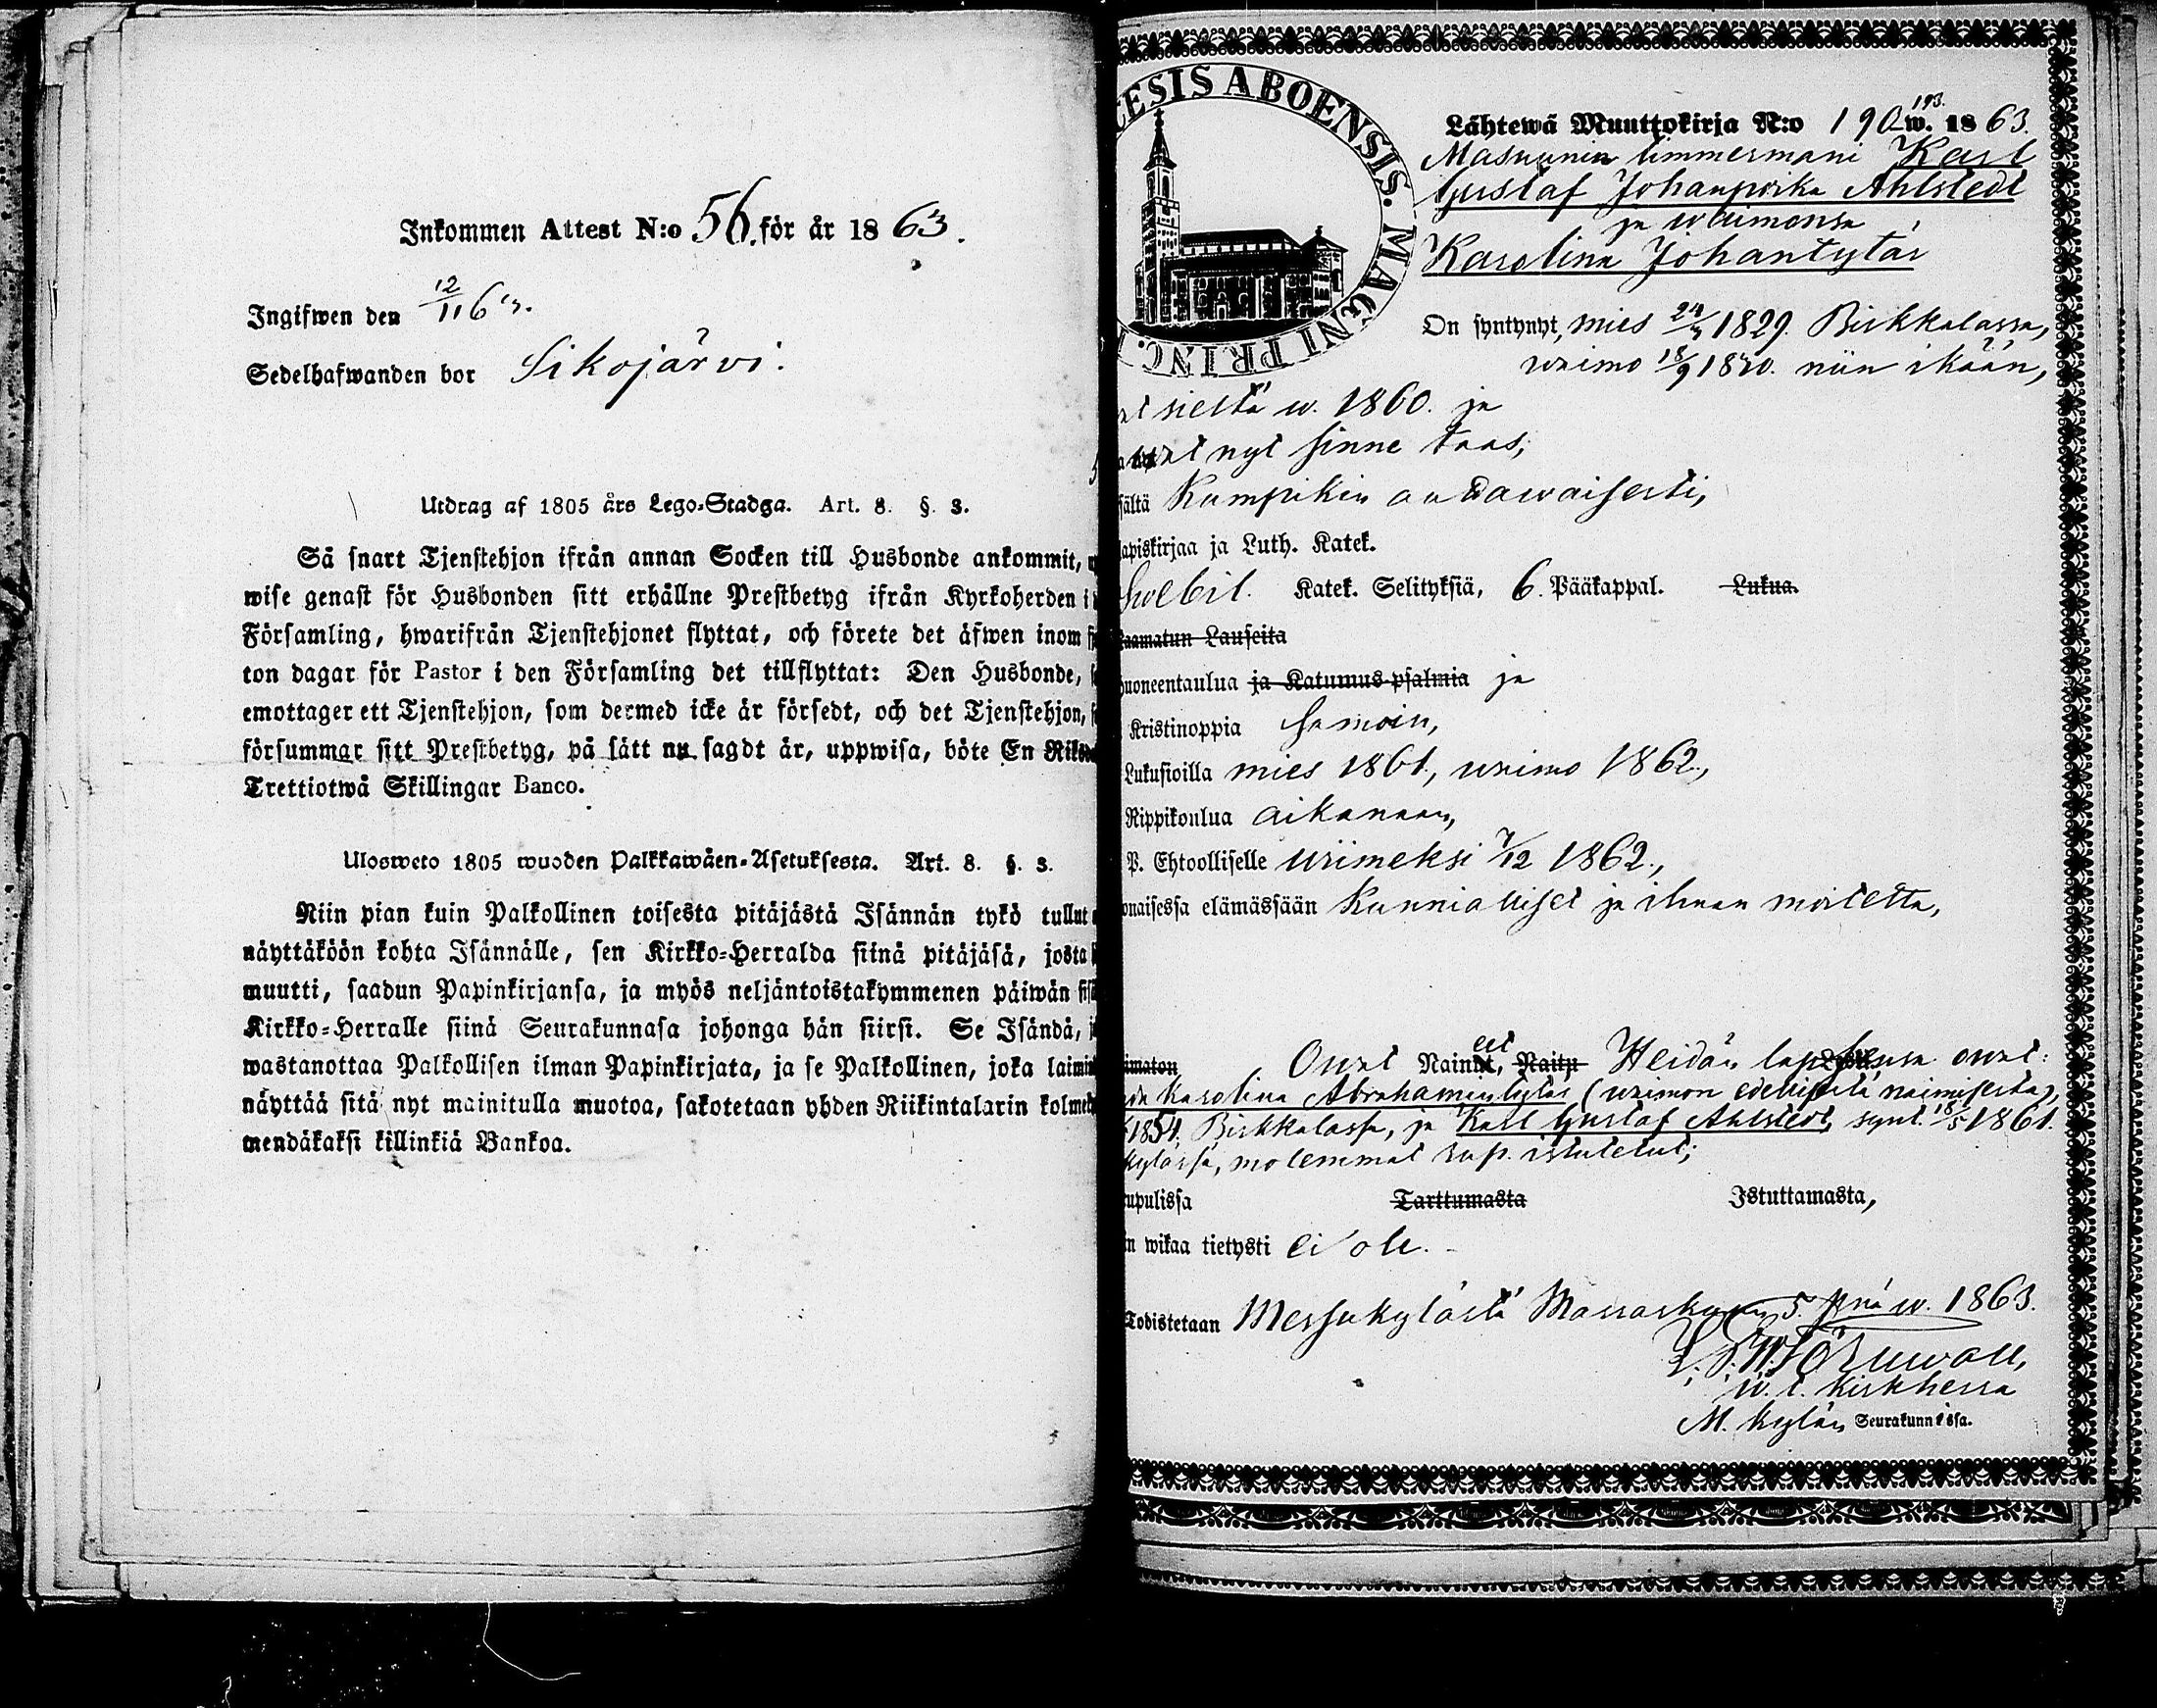 Inkommen Attest N:o 56. för år 1863.
Ingifwen den 12/11 63.
Sedelhafwanden bor Sikojärvi.
Utdrag af 1805 års Lego-Stadga. Art. 8. §. 3.
Så snart Tjenstehjon ifrån annan Socken till Husbonde ankommit,
wise genast för Husbonden sitt erhållne Prestbetyg ifrån Kyrkoherden i
Församling, hwarifrån Tjenstehjonet flyttat, och förete det äfwen inom
ton dagar för Pastor i den Församling det tillflyttat: Den Husbonde,
emottager ett Tjenstehjon, som dermed icke är försedt, och det Tjenstehjon,
försummar sitt Prestbetyg, på sätt nu sagdt är, uppwisa, böte En Riks
Trettiotwå Skillingar Banco.
Ulosweto 1805 wuoden Palkkawäen-Asetuksesta. Art. 8. §. 3.
Niin pian kuin Palkollinen toisesta pitäjästä Isännän tykö tullut
näyttäköön kohta Isännälle, sen Kirkko-Herralda siinä pitäjäsä, josta
muutti, saadun Papinkirjansa, ja myös neljäntoistakymmenen päiwän sis
Kirkko-Herralle siinä Seurakunnasa johonga hän siirsi. Se Isändä,
wastanottaa Palkollisen ilman Papinkirjata, ja se Palkollinen, joka laimin
näyttää sitä nyt mainitulla muotoa, sakotetaan yhden Riikintalarin kolme
mendäkaksi killinkiä Bankoa.
ESIS ABOENSIS. MAGNI PRINC.
Lähtewä Muuttokirja N:o 190 193. w. 1863.
Masuunin timmermani Karl
Gustaf Johanpoika Ahlstedt
ja waimonsa
Karolina Johantytär
On syntynyt, mies 24/3 1829. Birkkalassa,
waimo 18/9 1830. niin ikään,
at sieltä w. 1860. ja
wat nyt sinne taas,
sältä Kumpikin andawaisesti,
apiskirjaa ja Luth. Katek.
Swebil. Katek. Selityksiä, 6. Pääkappal. Lukua.
aamatun Lauseita
huoneentaulua ja Katumus-psalmia ja
Kristinoppia Samoin,
Lukusioilla mies 1861., waimo 1862.,
Rippikoulua aikanaan,
P. Ehtoolliselle wiimeksi 7/12 1862.,
onaisessa elämässään Kunnialliset ja ilman moitetta,
imaton Owat Naineet, Naitu Heidän lapsensa owat:
da Karolina Abrahamintytär (waimon edellisestä naimisesta),
1854. Birkkalassa, ja Karl Gustaf Ahlstedt, synt. 18/5 1861.
kylässä, molemmat rup. istutetut;
upulissa Tarttumasta Istuttamasta,
n wikaa tietysti ei ole.
Todistetaan Messukylästä Marraskuun 5. p:nä w. 1863.
w. t. Kirkherra
M. kylän Seurakunnissa.